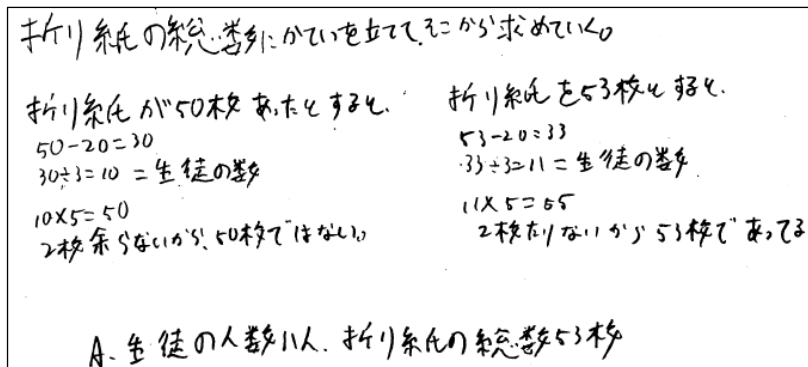 折り紙の総数にかていを立てて、そこから求めていく。
折り紙が50枚あったとすると、
50-20=30
30÷3=10=生徒の数
10×5=50
2枚余らないから、50枚ではない。
折り紙を53枚とすると、
53-20=33
33÷3=11=生徒の数
11×5=55
2枚たりないから53枚であってる
A、生徒の人数11人、折り紙の総数53枚